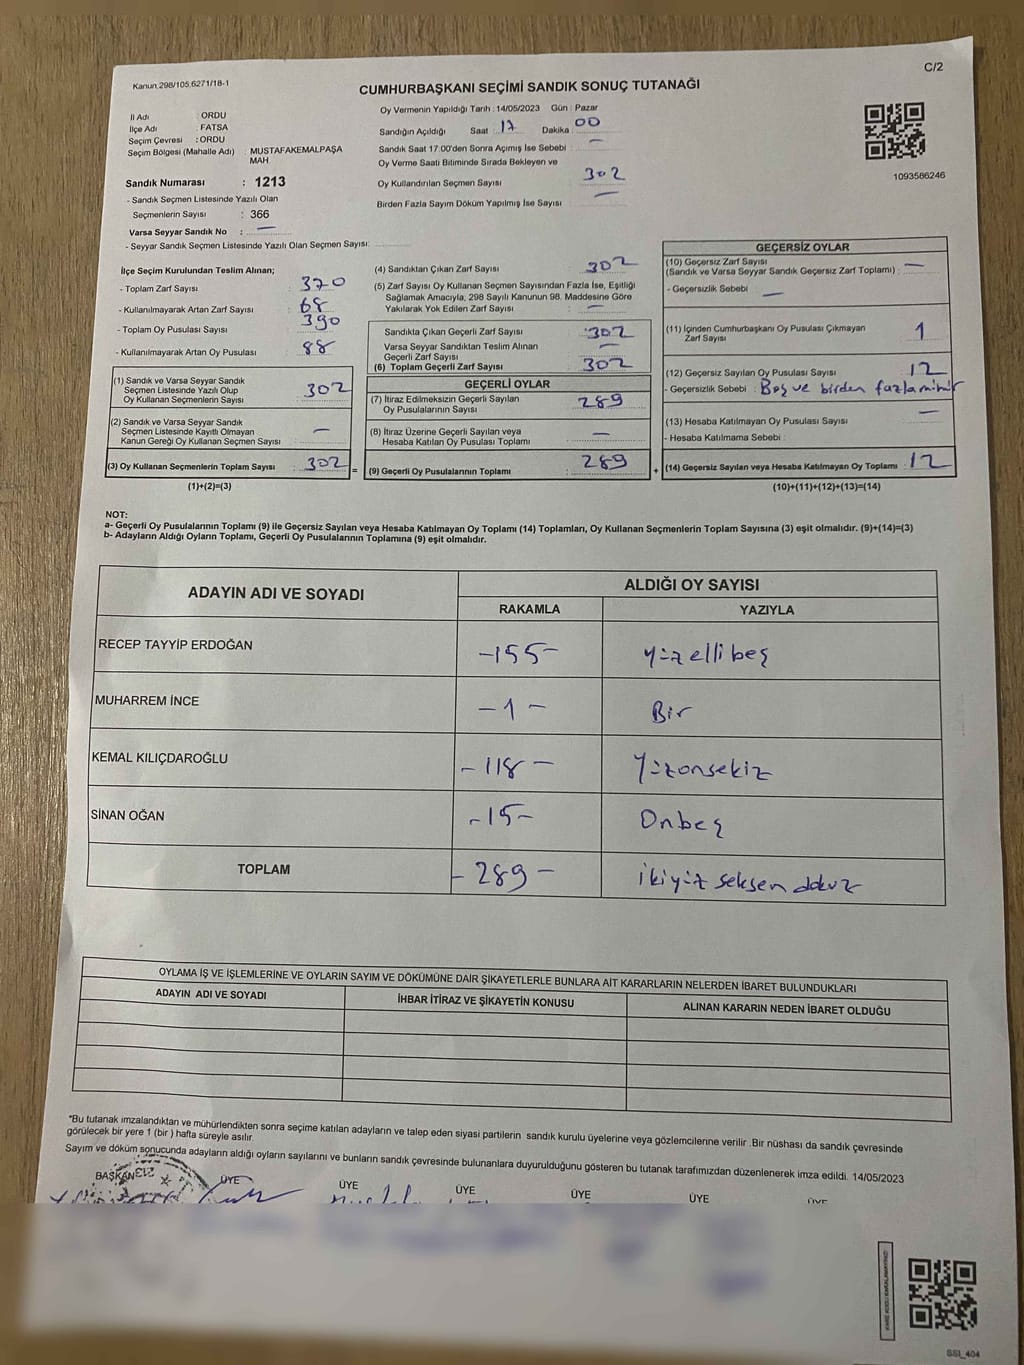 C/2
Kanun.298/105.6271/18-1
CUMHURBAŞKANI SEÇİMİ SANDIK SONUÇ TUTANAĞI
İl Adı : ORDU
İlçe Adı : FATSA
Seçim Çevresi : ORDU
Seçim Bölgesi (Mahalle Adı) : MUSTAFAKEMALPAŞA
MAH
Sandık Numarası : 1213
- Sandık Seçmen Listesinde Yazılı Olan
Seçmenlerin Sayısı : 366
Varsa Seyyar Sandık No : —
- Seyyar Sandık Seçmen Listesinde Yazılı Olan Seçmen Sayısı:
Oy Vermenin Yapıldığı Tarih : 14/05/2023 Gün : Pazar
Sandığın Açıldığı Saat : 17 Dakika : 00
Sandık Saat 17.00'den Sonra Açımış İse Sebebi : —
Oy Verme Saati Bitiminde Sırada Bekleyen ve
Oy Kullandırılan Seçmen Sayısı : 302
Birden Fazla Sayım Döküm Yapılmış İse Sayısı : —
1093586246
İlçe Seçim Kurulundan Teslim Alınan;
- Toplam Zarf Sayısı : 370
- Kullanılmayarak Artan Zarf Sayısı : 68
- Toplam Oy Pusulası Sayısı : 390
- Kullanılmayarak Artan Oy Pusulası : 88
(1) Sandık ve Varsa Seyyar Sandık
Seçmen Listesinde Yazılı Olup
Oy Kullanan Seçmenlerin Sayısı : 302
(2) Sandık ve Varsa Seyyar Sandık
Seçmen Listesinde Kayıtlı Olmayan
Kanun Gereği Oy Kullanan Seçmen Sayısı : —
(3) Oy Kullanan Seçmenlerin Toplam Sayısı : 302
(1)+(2)=(3)
=
(4) Sandıktan Çıkan Zarf Sayısı : 302
(5) Zarf Sayısı Oy Kullanan Seçmen Sayısından Fazla İse, Eşitliği
Sağlamak Amacıyla, 298 Sayılı Kanunun 98. Maddesine Göre
Yakılarak Yok Edilen Zarf Sayısı : —
Sandıkta Çıkan Geçerli Zarf Sayısı : 302
Varsa Seyyar Sandıktan Teslim Alınan
Geçerli Zarf Sayısı : —
(6) Toplam Geçerli Zarf Sayısı : 302
GEÇERLİ OYLAR
(7) İtiraz Edilmeksizin Geçerli Sayılan
Oy Pusulalarının Sayısı : 289
(8) İtiraz Üzerine Geçerli Sayılan veya
Hesaba Katılan Oy Pusulası Toplamı : —
(9) Geçerli Oy Pusulalarının Toplamı : 289
+
GEÇERSİZ OYLAR
(10) Geçersiz Zarf Sayısı
(Sandık ve Varsa Seyyar Sandık Geçersiz Zarf Toplamı) : —
- Geçersizlik Sebebi : —
(11) İçinden Cumhurbaşkanı Oy Pusulası Çıkmayan
Zarf Sayısı : 1
(12) Geçersiz Sayılan Oy Pusulası Sayısı : 12
- Geçersizlik Sebebi : Boş ve birden fazla
(13) Hesaba Katılmayan Oy Pusulası Sayısı : —
- Hesaba Katılmama Sebebi :
(14) Geçersiz Sayılan veya Hesaba Katılmayan Oy Toplamı : 12
(10)+(11)+(12)+(13)=(14)
NOT:
a- Geçerli Oy Pusulalarının Toplamı (9) ile Geçersiz Sayılan veya Hesaba Katılmayan Oy Toplamı (14) Toplamları, Oy Kullanan Seçmenlerin Toplam Sayısına (3) eşit olmalıdır. (9)+(14)=(3)
b- Adayların Aldığı Oyların Toplamı, Geçerli Oy Pusulalarının Toplamına (9) eşit olmalıdır.
ADAYIN ADI VE SOYADI ALDIĞI OY SAYISI
RAKAMLA YAZIYLA
RECEP TAYYİP ERDOĞAN -155- yüzellibeş
MUHARREM İNCE -1- Bir
KEMAL KILIÇDAROĞLU -118- Yüzonsekiz
SİNAN OĞAN -15- Onbeş
TOPLAM -289- ikiyüz seksen dokuz
OYLAMA İŞ VE İŞLEMLERİNE VE OYLARIN SAYIM VE DÖKÜMÜNE DAİR ŞİKAYETLERLE BUNLARA AİT KARARLARIN NELERDEN İBARET BULUNDUKLARI
ADAYIN ADI VE SOYADI İHBAR İTİRAZ VE ŞİKAYETİN KONUSU ALINAN KARARIN NEDEN İBARET OLDUĞU
*Bu tutanak imzalandıktan ve mühürlendikten sonra seçime katılan adayların ve talep eden siyasi partilerin sandık kurulu üyelerine veya gözlemcilerine verilir .Bir nüshası da sandık çevresinde
görülecek bir yere 1 (bir ) hafta süreyle asılır.
Sayım ve döküm sonucunda adayların aldığı oyların sayılarını ve bunların sandık çevresinde bulunanlara duyurulduğunu gösteren bu tutanak tarafımızdan düzenlenerek imza edildi. 14/05/2023
BAŞKAN ÜYE ÜYE ÜYE ÜYE ÜYE ÜYE
SSI_404